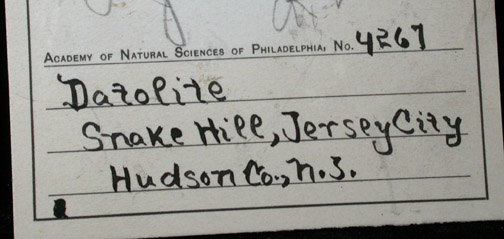 ACADEMY OF NATURAL SCIENCES OF PHILADELPHIA, No. 4267
Datolite
Snake Hill, Jersey City
Hudson Co., N.J.